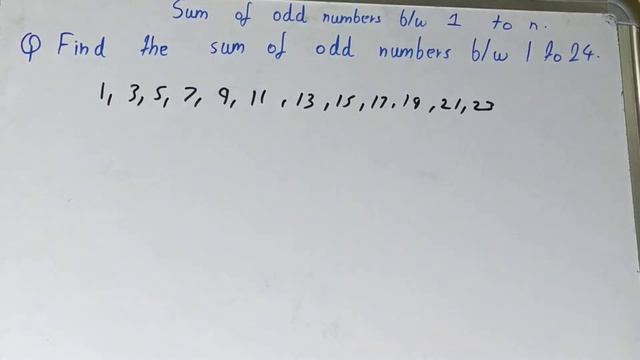 Sum of odd numbers b/w 1 to n.
Q Find the sum of odd numbers b/w 1 to 24.
1, 3, 5, 7, 9, 11, 13, 15, 17, 19, 21, 23